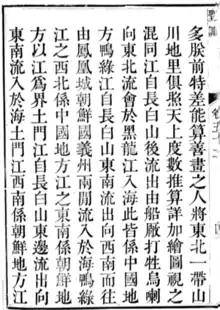 多朕前特差能算善畫之人將東北一帶山
川地里俱照天上度數推算詳加繪圖視之
混同江自長白山後流出由船廠打牲烏喇
向東北流會於黑龍江入海此皆係中國地
方鴨綠江自長白山東南流出向西南而往
由鳳凰城朝鮮國義州兩閒流入於海鴨綠
江之西北係中國地方江之東南係朝鮮地
方以江爲界土門江自長白山東邊流出向
東南流入於海土門江西南係朝鮮地方江